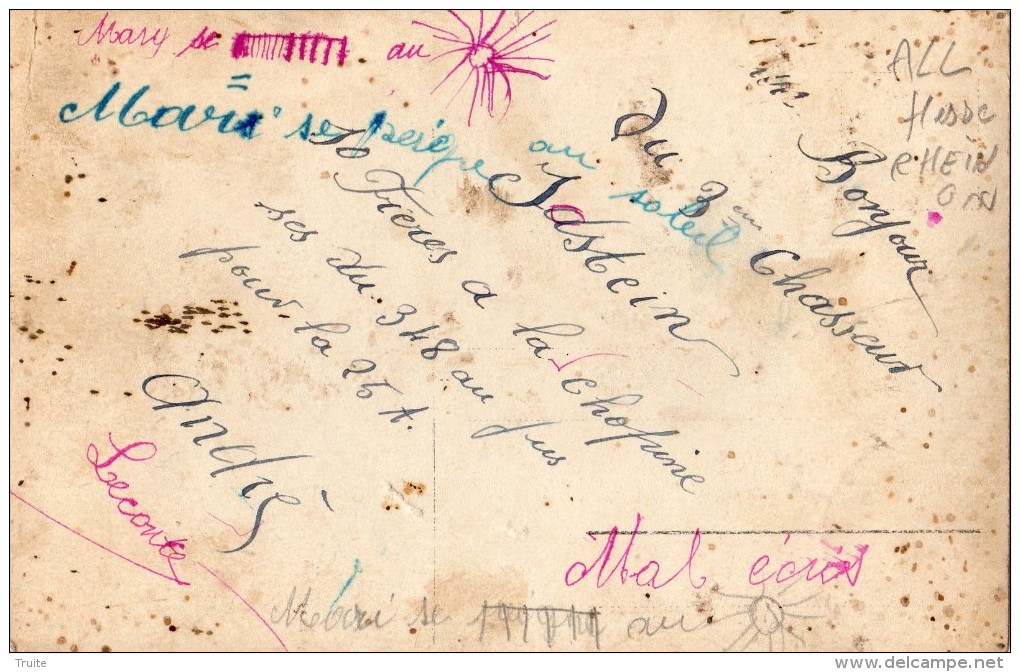 Mary se au
Mari se peigne au soleil
ALL
Hesse
RHEIN
Bonjour
du 3 em Chasseur
Idstein
10 Frères a la Chopine
ses du 348 au jus
pour la 25 t.
André
Leconte
Mal écris
Mari se au
Truite
http://www.delcampe.net